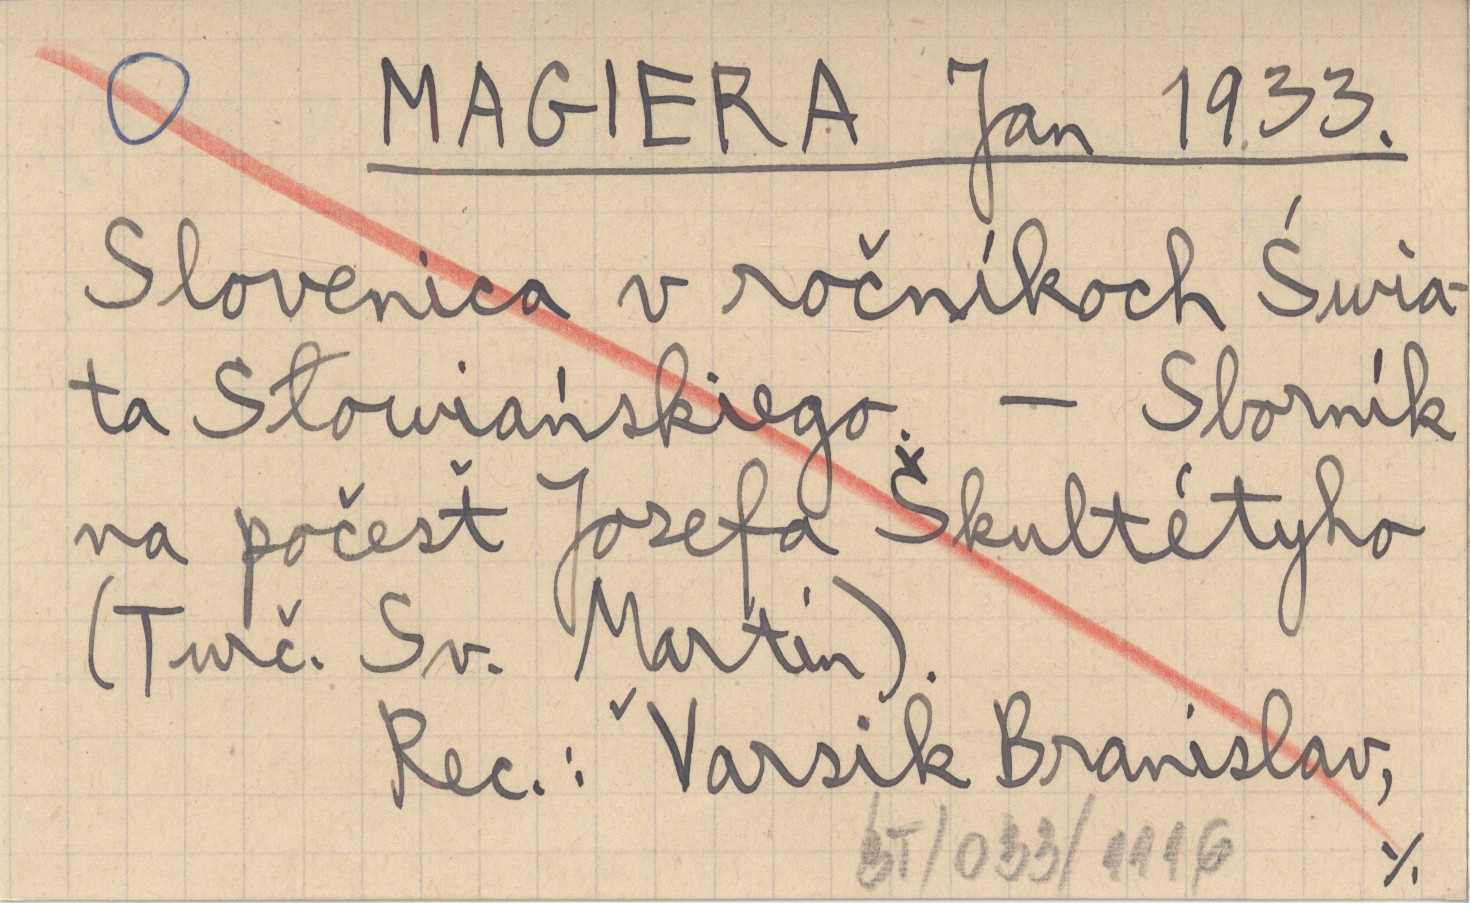 O MAGIERA Jan 1933.
Slovenica v ročníkoch Świa-
ta Słowiańskiego. — Sborník
na počesť Jozefa Škultétyho
(Turč. Sv. Martin).
Rec.: ˇVarsik Branislav,
BT/033/1116
./.